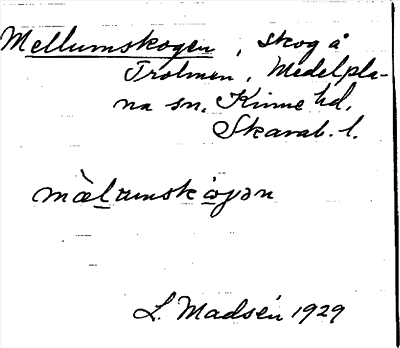 Mellumskogen, skog å
Trolmen, Medelpla-
na sn, Kinne hd,
Skarab. l.
L. Madsén 1929